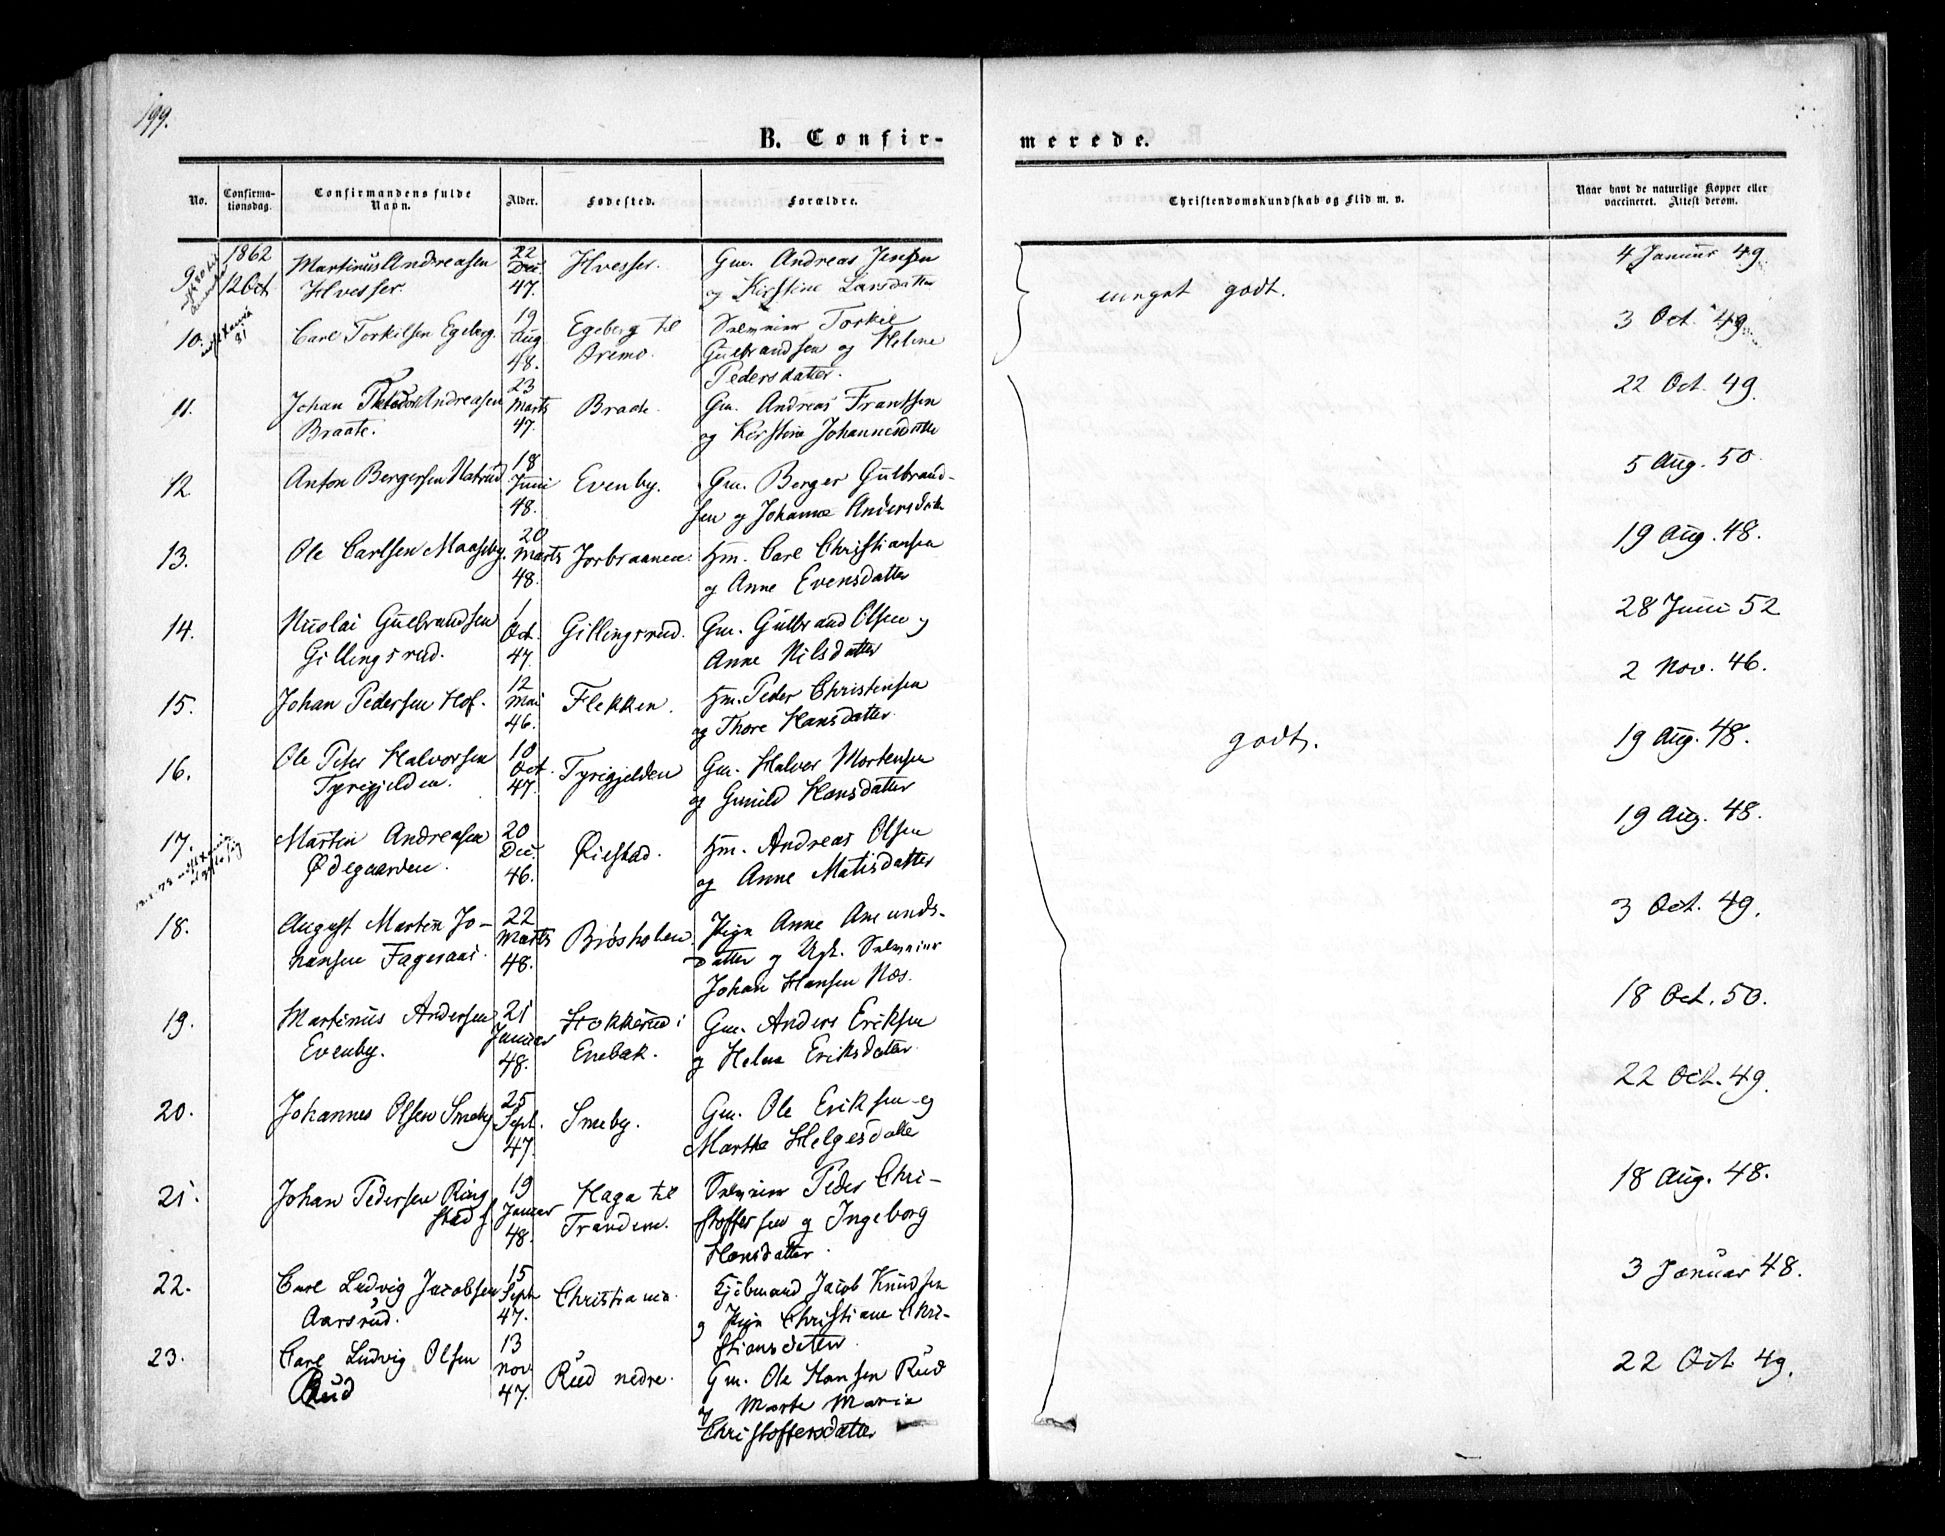 199.
B. Confir-
merede.
No.
Confirma-
tionsdag.
Confirmandens fulde
Navn.
Alder.
Fødested.
Forældre.
Christendomskundskab og Flid m. v.
Naar havt de naturlige Kopper eller
vaccineret. Attest derom.
9.
1862
12 Oct
Martinus Andreasen
Hvesser.
22
Dec.
47.
Hvesser.
Gm. Andreas Jensen
og Kirstine Larsdatter
meget godt.
4 Januar 49.
10.
Carl Torkilsen Egeberg.
19
Aug
48.
Egeberg til
Bremo.
Selveier Torkil
Gulbrandsen og Helene
Pedersdatter.
3 Oct. 49.
11.
Johan Andreasen
Braate.
23
Marts
47.
Braate.
Gm. Andreas Frantsen
og Kirstine Johannesdatter
22 Oct. 49.
12.
Anton Bergersen Natrud.
18
Juni
48.
Evenby.
Gm. Berger Gulbrand-
sen og Johanne Andersdatter
5 Aug. 50.
13.
Ole Carlsen Maaseby.
20
Marts
48.
Jorbraanen.
Hm. Carl Christiansen
og Anne Evensdatter
19 Aug. 48.
14.
Nicolai Gulbrandsen
Gillingsrud.
1
Oct.
47.
Gillingsrud.
Gm. Gulbrand Olsen og
Anne Nilsdatter
28 Juni 52
15.
Johan Pedersen Hof.
12
Mai
46.
Flekken.
Hm. Peder Christensen
og Thore Hansdatter.
2 Nov. 46.
16.
Ole Peter Halvorsen
Tyrigjelden.
10
Oct.
47.
Tyrigjelden
Gm. Halvor Mortensen
og Gunild Hansdatter
godt.
19 Aug. 48.
17.
Martin Andreasen
Ødegaarden.
20
Dec.
46.
Øiestad.
Hm. Andreas Olsen
og Anne Matisdatter
19 Aug. 48.
18.
August Martin Jo-
hansen Fageraas.
22
Marts
48.
Biøsholen.
Pige Anne Amunds-
datter og Ugk. Selveier
Johan Hansen Næs.
3 Oct. 49.
19.
Martinus Andersen
Evenby.
21
Januar
48.
Stokkerud i
Enebak.
Gm. Anders Eriksen
og Helene Eriksdatter.
18 Oct. 50.
20.
Johannes Olsen Smeby
25
Sept.
47.
Smeby.
Gm. Ole Eriksen og
Marthe Helgesdatter
22 Oct. 49.
21.
Johan Pedersen Ring
stad
19
Januar
48.
Haga til
Trandem.
Selveier Peder Chri-
stoffersen og Ingeborg
Hansdatter.
18 Aug. 48.
22.
Carl Ludvig Jacobsen
Aarsrud.
15
Sept
47.
Christiania.
Kjøbmand Jacob Knudsen
og Pige Christiane Chri-
stiansdatter.
3 Januar 48.
23.
Carl Ludvig Olsen
Rud
13
Nov
47.
Rud nedre.
Gm. Ole Hansen Rud
og Marte Maria
Christoffersdatter
22 Oct. 49.